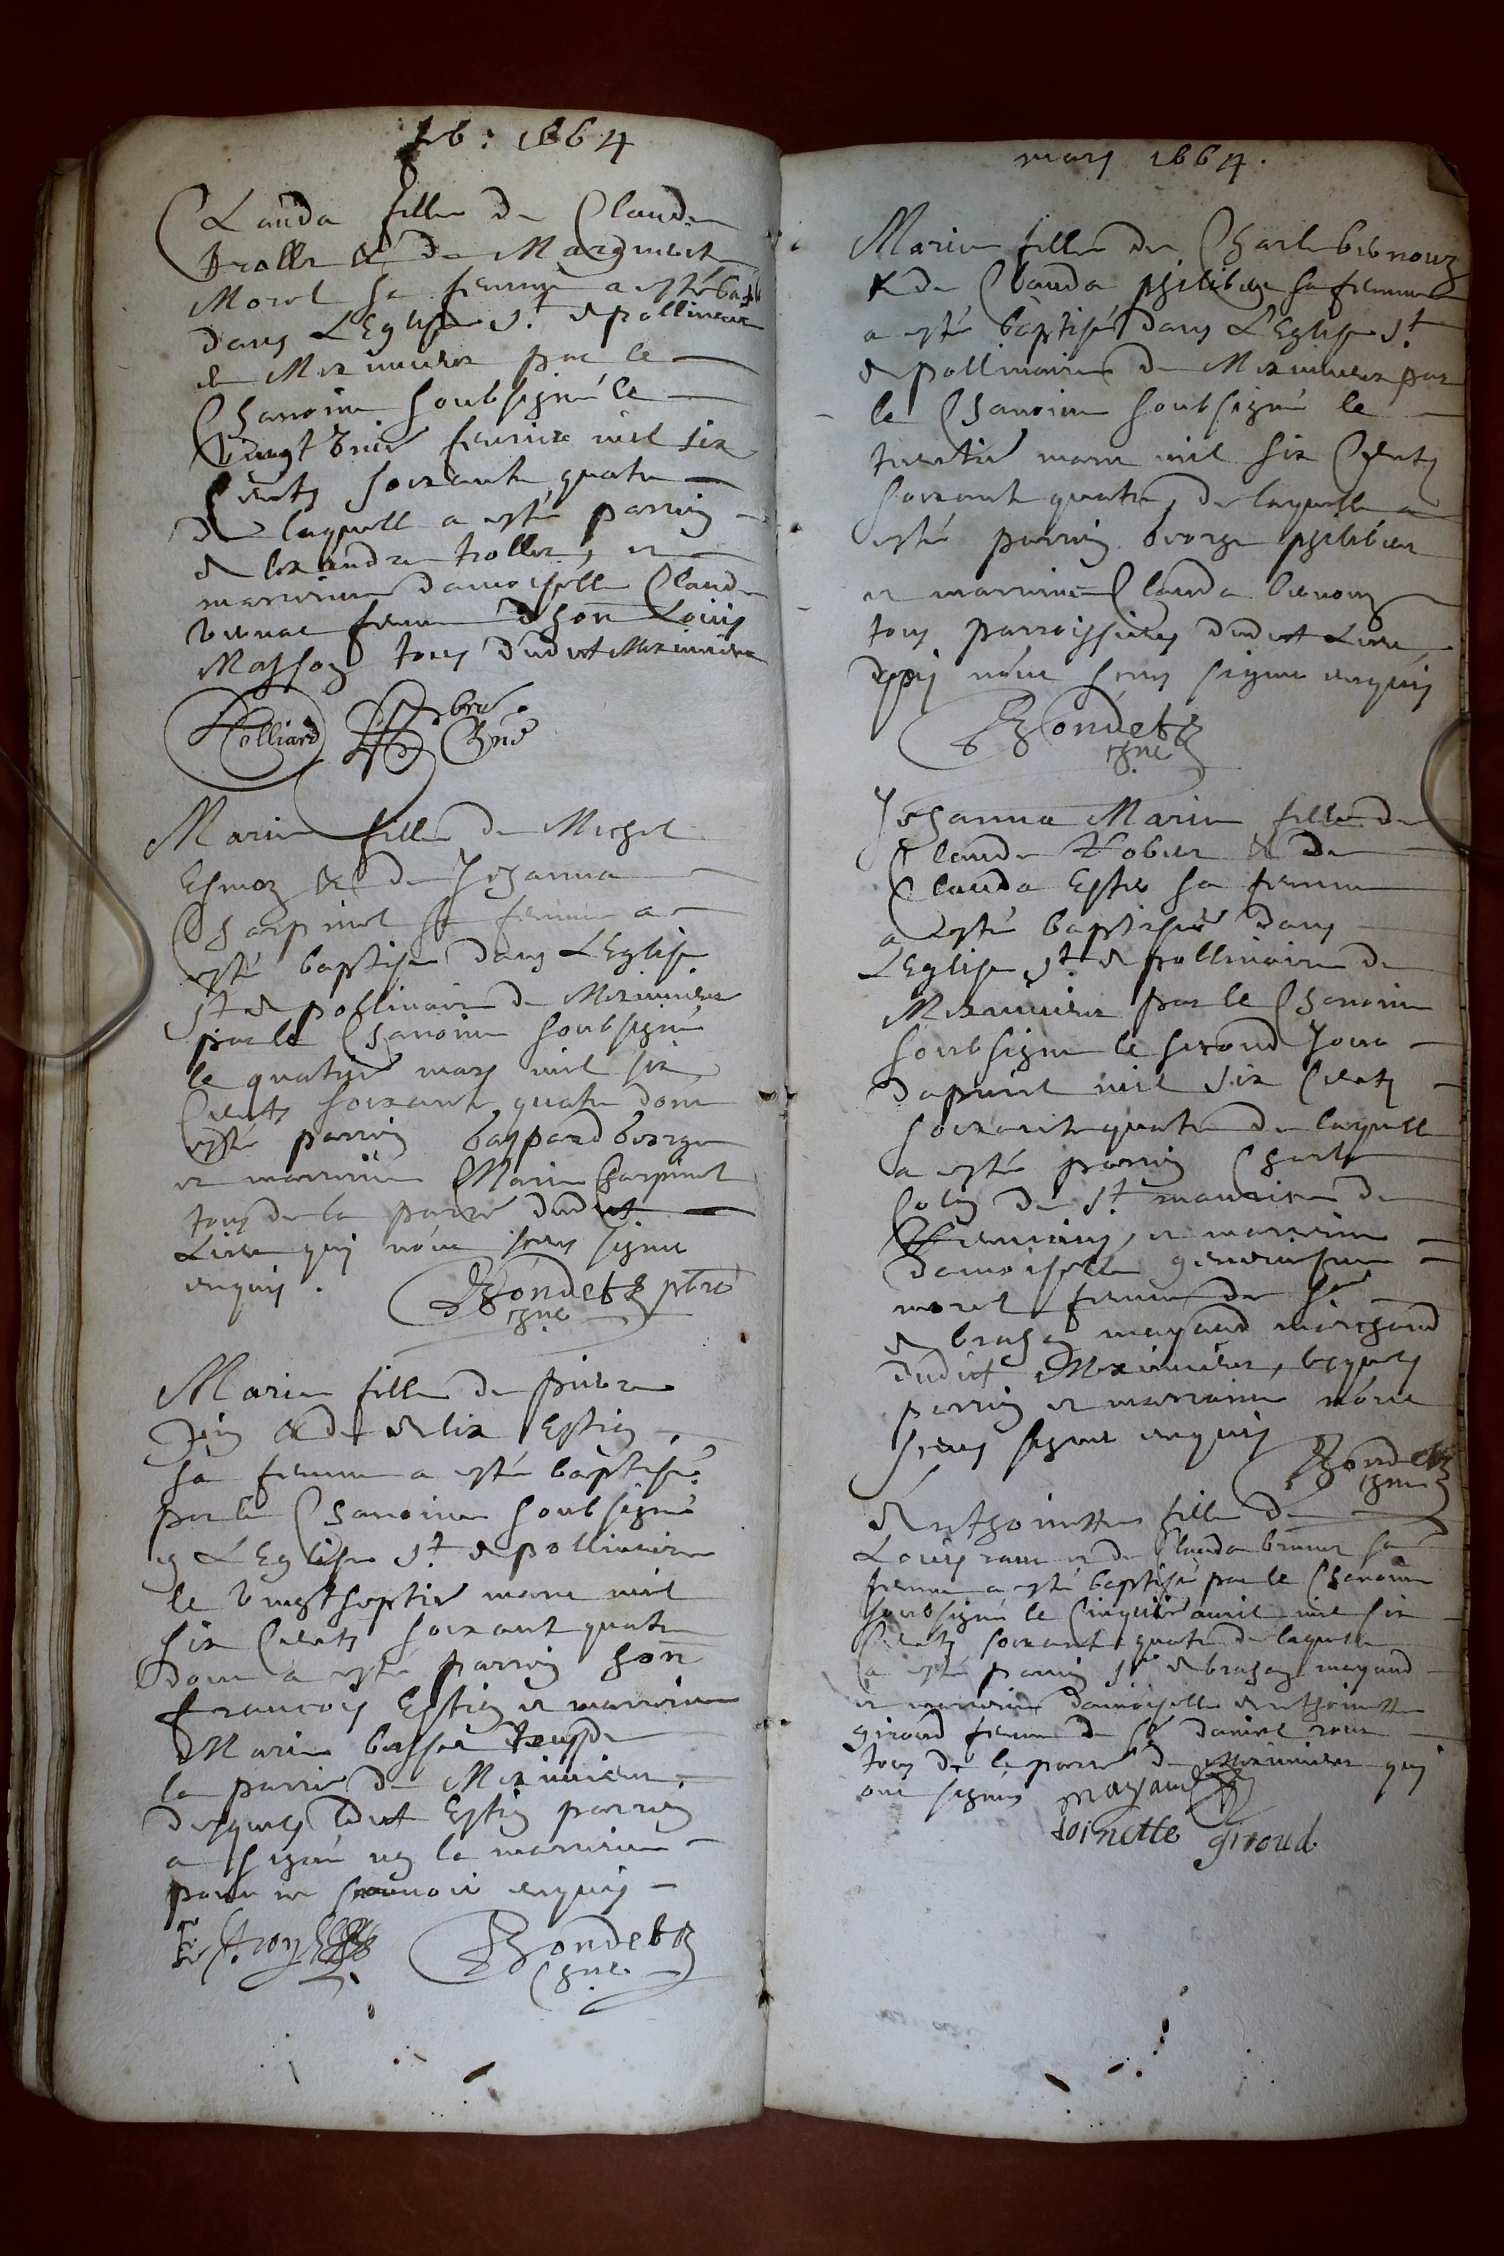 feb : 1664
Clauda fille de Claude
trollie & de Marguerite
Morel sa femme a esté bapt
dans L'Eglise St Apollinaire
de Meximieux par le
Chanoine soubsigné le
vingt feurier mil six
Centz soixante quatre
de laquelle a esté parrin
Alexandre trollier, et
marreine damoiselle Claude
femme d'hon Louis
Masson tous dudict Meximieux
Marie fille de Michel
& de Jehanna
Charpinel sa femme a
esté baptisé dans L'Eglise
St Apollinaire de Meximieux
par le Chanoine soubsigné
le quatrie mars mil six
Centz soixante quatre dont
esté parrin gaspard george
et marreine Marie Charpinel
tous de la parre dudict
Lieu qui n'ont sceu signer
enquis .
Rondetz pbre
chne
Marie fille de pierre
& de Alix Estien
sa femme a esté baptisé
par le Chanoine soubsigné
en L'Eglise St Apollinaire
le vingtseptie mars mil
six Centz soixante quatre
dont a esté parrin hon
francois Estien et marreine
Marie tous de
la parre de Meximieux,
desquels ledict Estien parrin
a signé non la marreine
pour ne scauoir enquis
Rondetz
chne
mars 1664.
Marie fille de Charle
& de Clauda philibert sa femme
a esté baptisé dans L'Eglise St
Apollinaire de Meximieux par
le Chanoine soubsigné le
trentie mars mil six Centz
soixante quatre, de laquelle a
esté parrin george philibert
et marreine Clauda
tous parroissiens dudict Lieu
qui n'ont sceu signer enquis
Rondetz
chne
Jehanna Marie fille de
Claude & de
Clauda Estie sa femme
a esté baptisée dans
L'Eglise St Apollinaire de
Meximieux par le Chanoine
soubsigné le second Jour
d'apuril mil six Centz
soixante quatre de laquelle
a esté parrin Charle
Colin de St maurice de
et marreine
damoiselle geneuiefue
morel femme de Sr
Abraham mayaud marchand
dudict Meximieux, lesquels
parrin et marreine n'ont
sceu signer enquis
Rondetz
chne
Anthoinette fille de
Louis roux et de Clauda brunet sa
femme a esté baptisé par le Chanoine
soubsigné le Cinquie auril mil six
Centz soixante quatre de laquelle
a esté parrin Sr Abraham mayaud
et marreine damoiselle Anthoinette
giroud femme de Sr daniel roux
tous de la parre de Meximieux qui
ont signés mayaud
toinette giroud